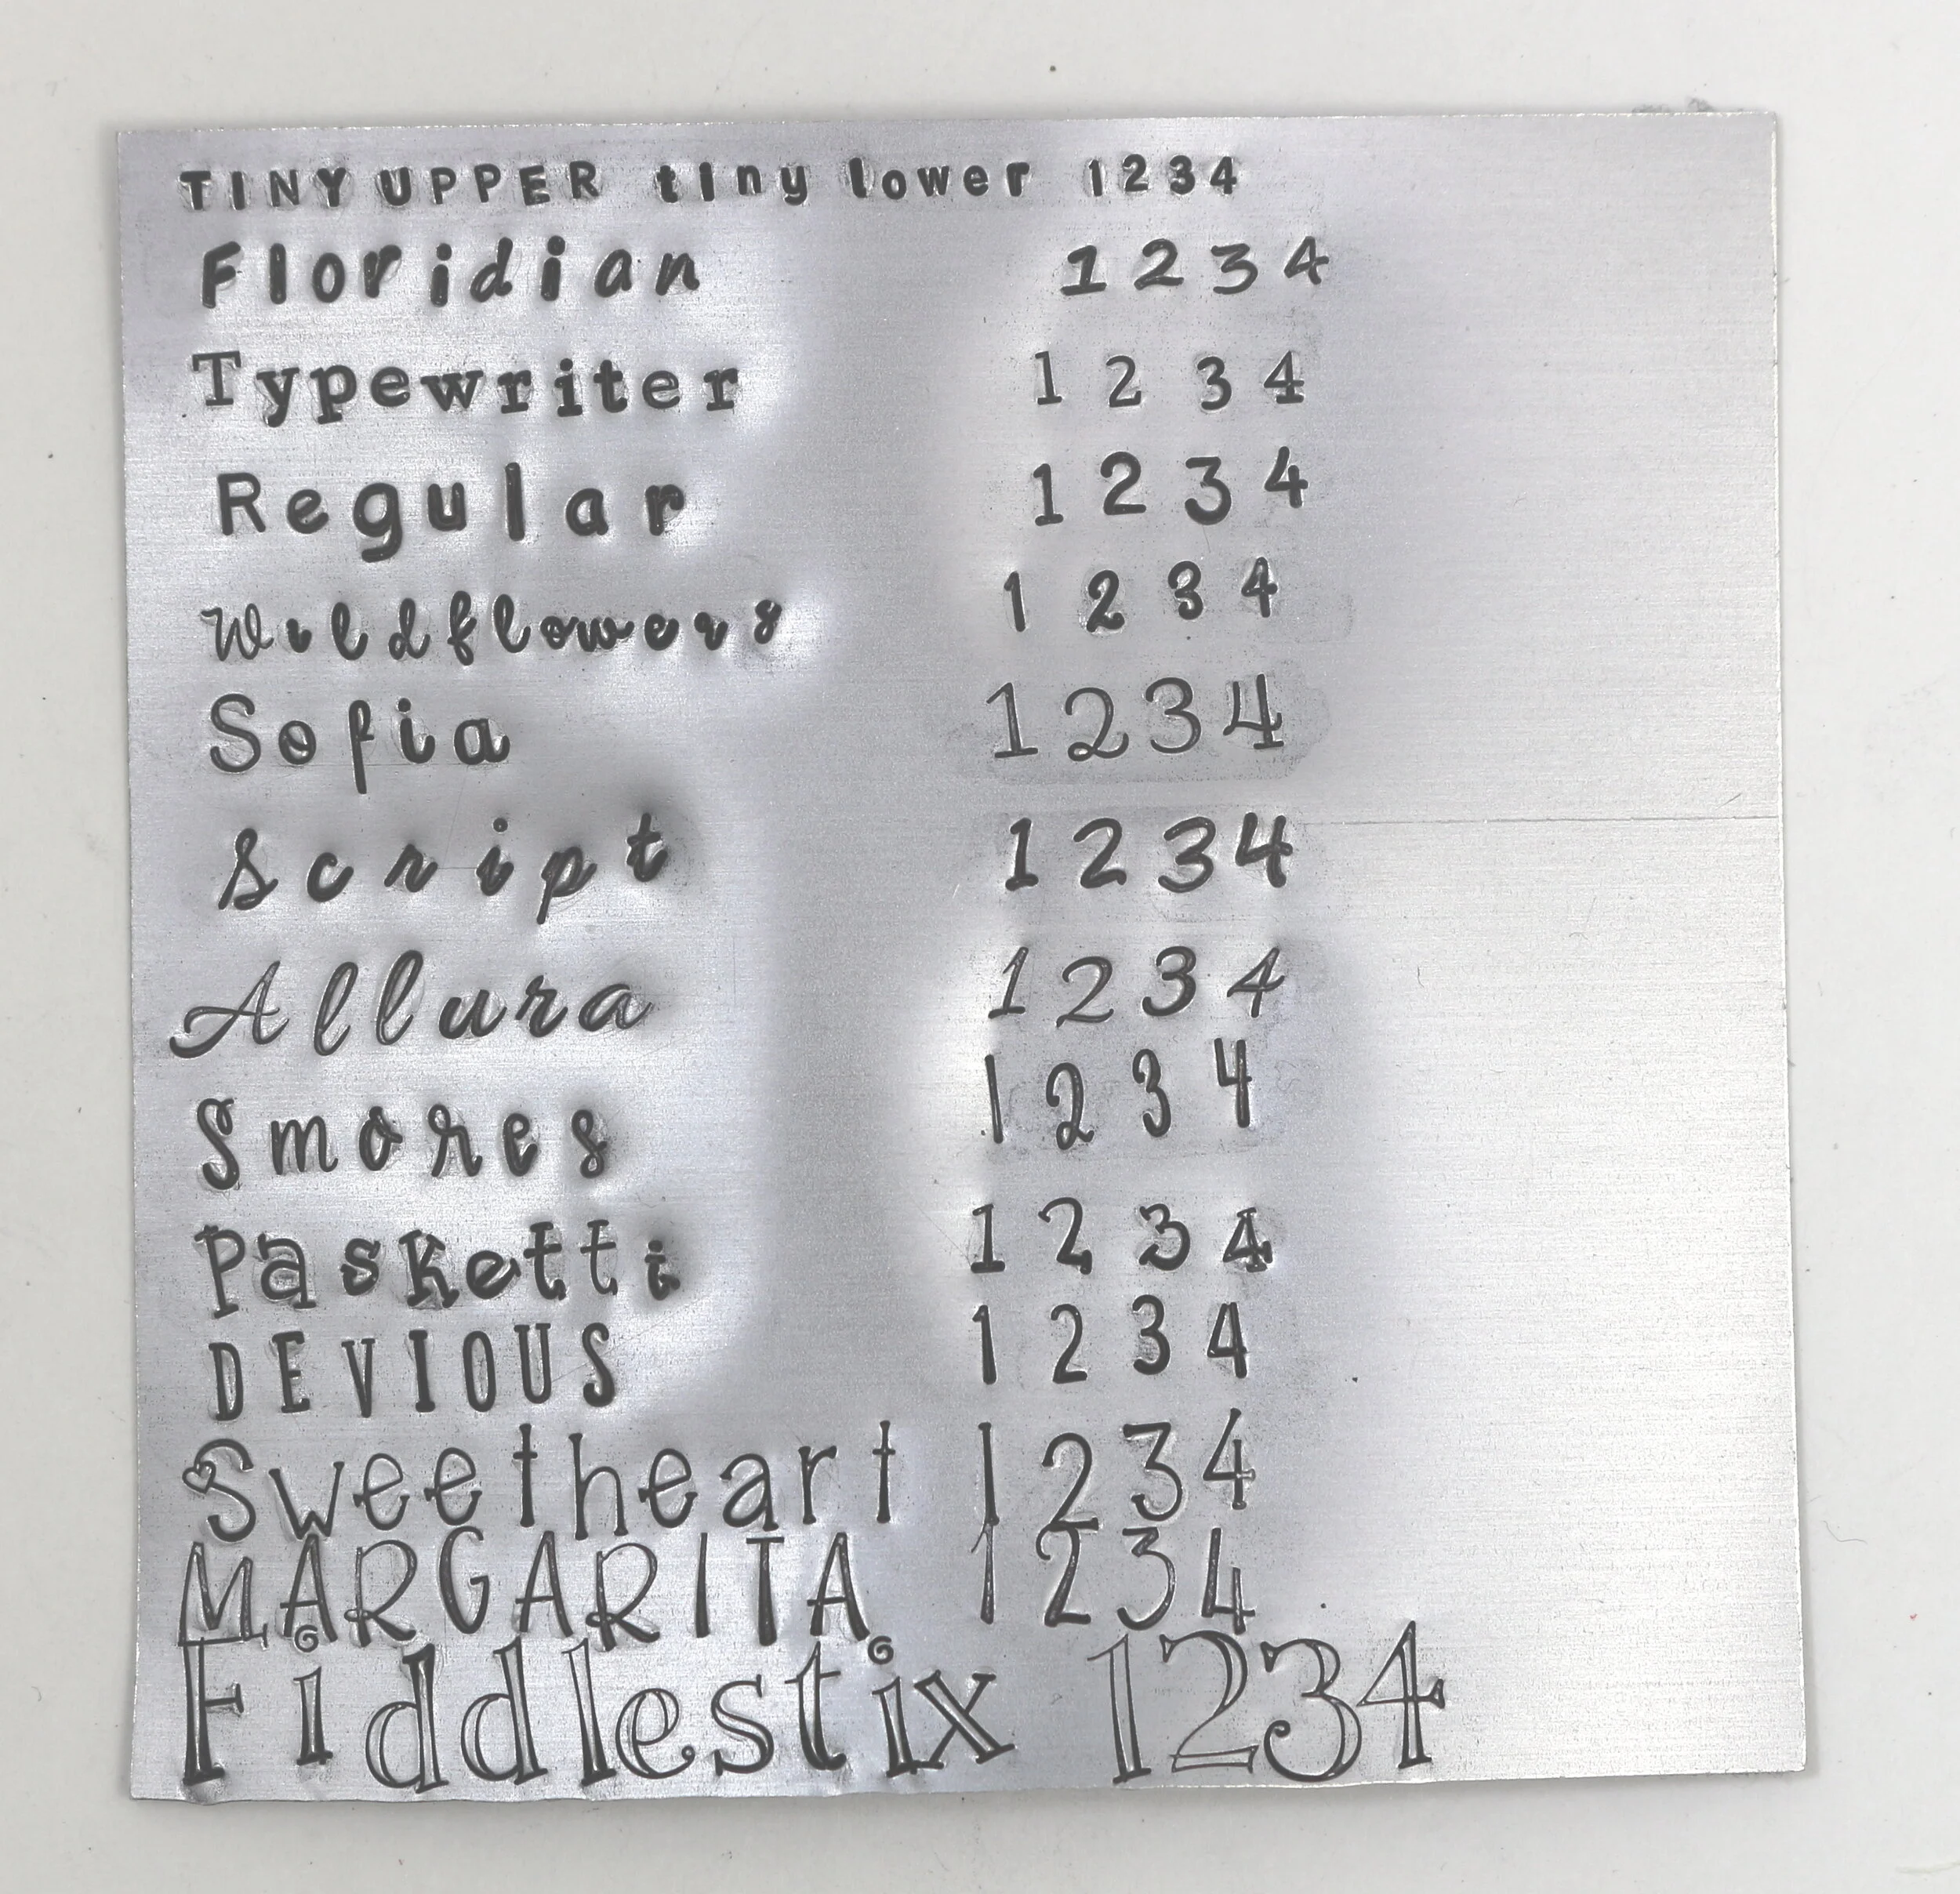 TINY UPPER tiny lower 1234
Floridian 1234
Typewriter 1234
Regular 1234
Wildflowers 1234
Sofia 1234
Script 1234
Allura 1234
Smores 1234
Pasketti 1234
DEVIOUS 1234
Sweetheart 1234
MARGARITA 1234
Fiddlestix 1234